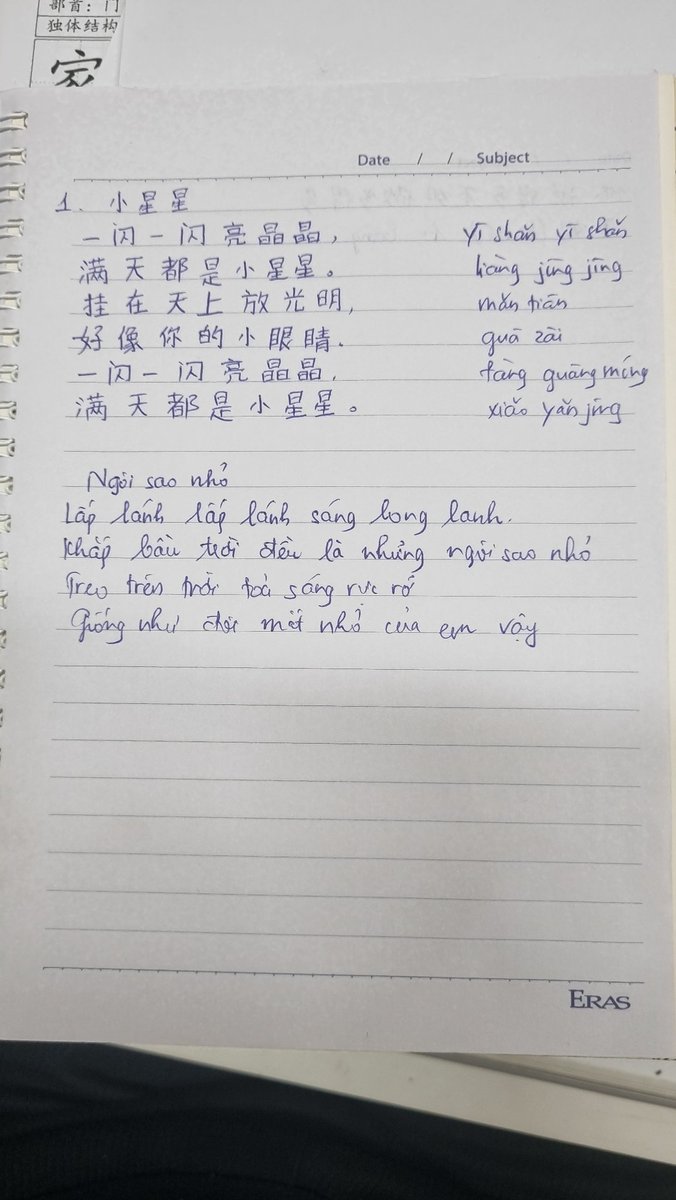 部首：门
独体结构
家
Date / / Subject
1. 小星星
一闪一闪亮晶晶， yī shǎn yī shǎn
满天都是小星星。 liàng jīng jīng
挂在天上放光明， mǎn tiān
好像你的小眼睛. guā zāi
一闪一闪亮晶晶. fàng guāng míng
满天都是小星星。 xiǎo yǎn jīng
Ngôi sao nhỏ
Lấp lánh lấp lánh sáng long lanh.
Khắp bầu trời đều là những ngôi sao nhỏ
Treo trên trời toả sáng rực rỡ
Giống như đôi mắt nhỏ của em vậy
ERAS